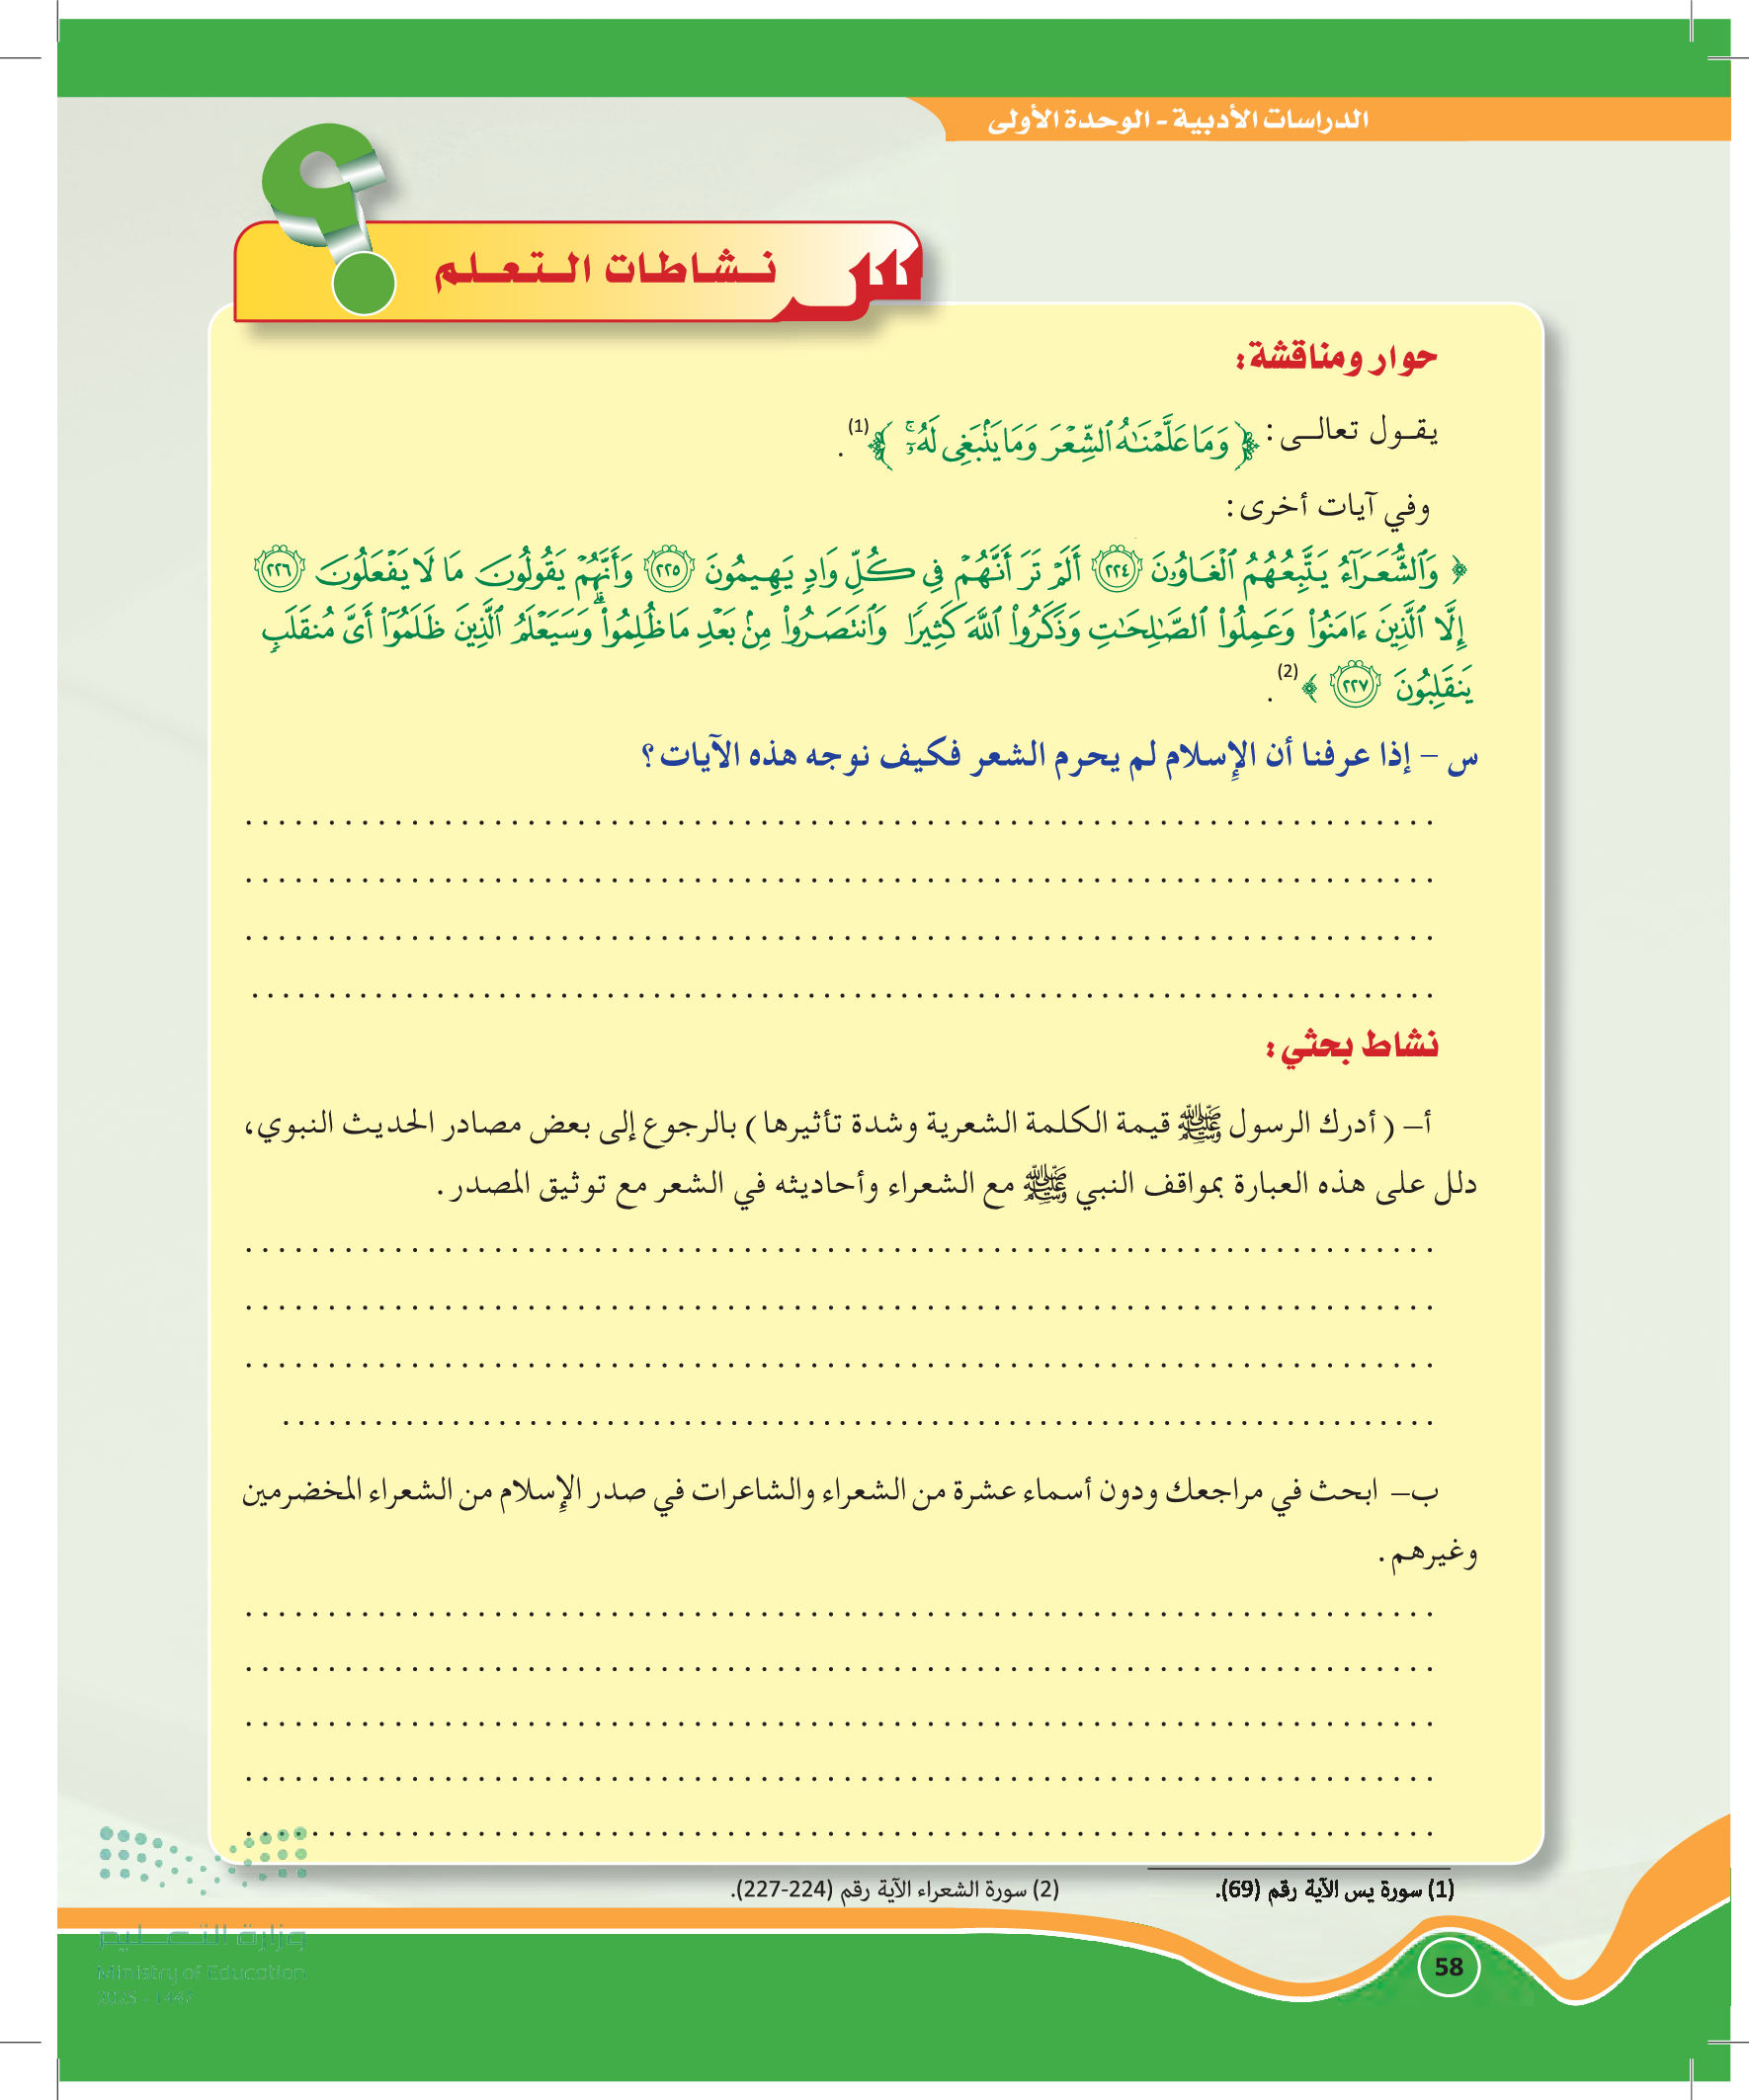 الدراسات الأدبية - الوحدة الأولى
س نشاطات التعلم
حوار ومناقشة:
يقول تعالى: ﴿ وَمَا عَلَّمْنَٰهُ ٱلشِّعْرَ وَمَا يَنۢبَغِى لَهُۥٓ ۚ ﴾(1).
وفي آيات أخرى:
﴿ وَٱلشُّعَرَآءُ يَتَّبِعُهُمُ ٱلْغَاوُۥنَ ٢٢٤ أَلَمْ تَرَ أَنَّهُمْ فِى كُلِّ وَادٍ يَهِيمُونَ ٢٢٥ وَأَنَّهُمْ يَقُولُونَ مَا لَا يَفْعَلُونَ ٢٢٦
إِلَّا ٱلَّذِينَ ءَامَنُوا۟ وَعَمِلُوا۟ ٱلصَّٰلِحَٰتِ وَذَكَرُوا۟ ٱللَّهَ كَثِيرًا وَٱنتَصَرُوا۟ مِنۢ بَعْدِ مَا ظُلِمُوا۟ ۗ وَسَيَعْلَمُ ٱلَّذِينَ ظَلَمُوٓا۟ أَىَّ مُنقَلَبٍ
يَنقَلِبُونَ ٢٢٧ ﴾(2).
س – إذا عرفنا أن الإسلام لم يحرم الشعر فكيف نوجه هذه الآيات؟
نشاط بحثي:
أ– (أدرك الرسول ﷺ قيمة الكلمة الشعرية وشدة تأثيرها) بالرجوع إلى بعض مصادر الحديث النبوي،
دلل على هذه العبارة بمواقف النبي ﷺ مع الشعراء وأحاديثه في الشعر مع توثيق المصدر.
ب– ابحث في مراجعك ودون أسماء عشرة من الشعراء والشاعرات في صدر الإسلام من الشعراء المخضرمين
وغيرهم.
(1) سورة يس الآية رقم (69). (2) سورة الشعراء الآية رقم (224-227).
وزارة التعليم
Ministry of Education
2025 - 1447
58